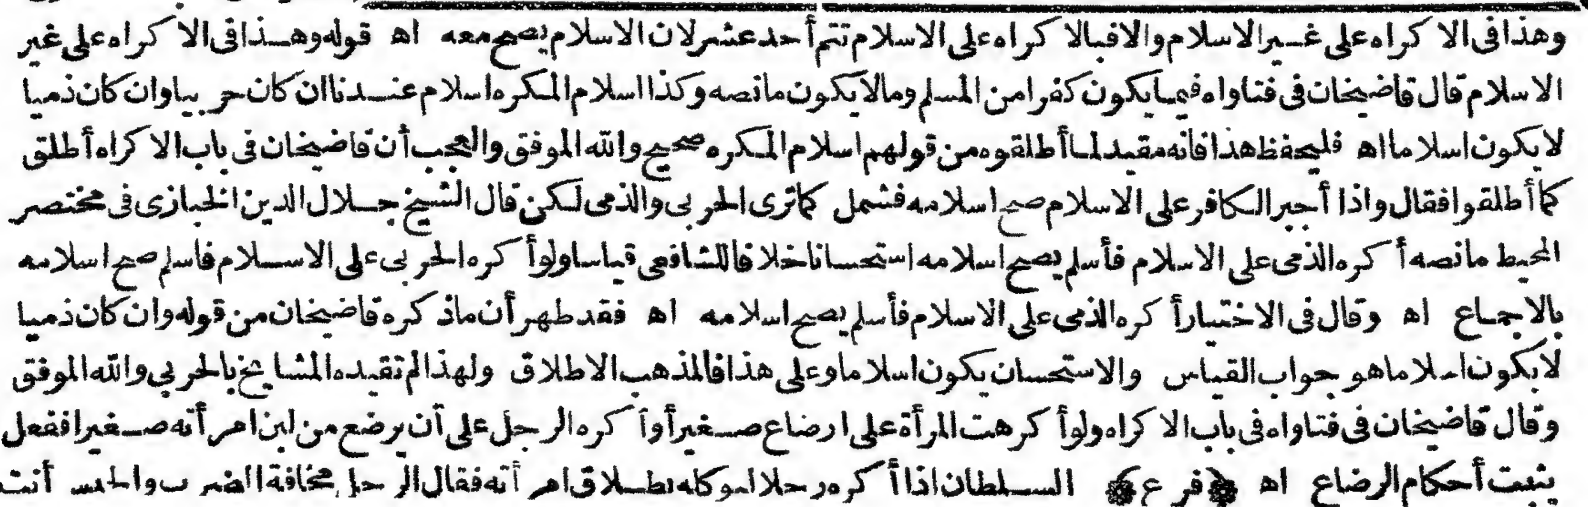 وهذا فى الاكراه على غير الاسلام والا فبالاكراه على الاسلام تتم أحد عشر لان الاسلام يصح معه اه قوله وهذا فى الاكراه على غير
الاسلام قال قاضيخان فى فتاواه فيما يكون كفرا من المسلم ومالا يكون مانصه وكذا اسلام المكره اسلام عندنا ان كان حربيا وان كان ذميا
لا يكون اسلاما اه فليحفظ هذا فانه مقيد لما أطلقوه من قولهم اسلام المكره صحيح والله الموفق والعجب أن قاضيخان فى باب الاكراه أطلق
كما أطلقوا فقال واذا أجبر الكافر على الاسلام صح اسلامه فشمل كما ترى الحربى والذمى لكن قال الشيخ جلال الدين الخبازى فى مختصر
المحيط مانصه أكره الذمى على الاسلام فأسلم يصح اسلامه استحسانا خلافا للشافعى قياسا ولو أكره الحربى على الاسلام فاسلم صح اسلامه
بالاجماع اه وقال فى الاختيار أكره الذمى على الاسلام فأسلم يصح اسلامه اه فقد طهر أن ماذكره قاضيخان من قوله وان كان ذميا
لا يكون اسلاما هو جواب القياس والاستحسان يكون اسلاما وعلى هذا فالمذهب الاطلاق ولهذا لم تقيده المشايخ بالحربى والله الموفق
وقال قاضيخان فى فتاواه فى باب الاكراه ولو أكرهت المرأة على ارضاع صغير أو أكره الرجل على أن يرضع من لبن امرأته صغيرا ففعل
يثبت أحكام الرضاع اه ﴿فرع﴾ السلطان اذا أكره رجلا ليوكله بطلاق امرأته فقال الرجل مخافة الضرب والحبس أنت